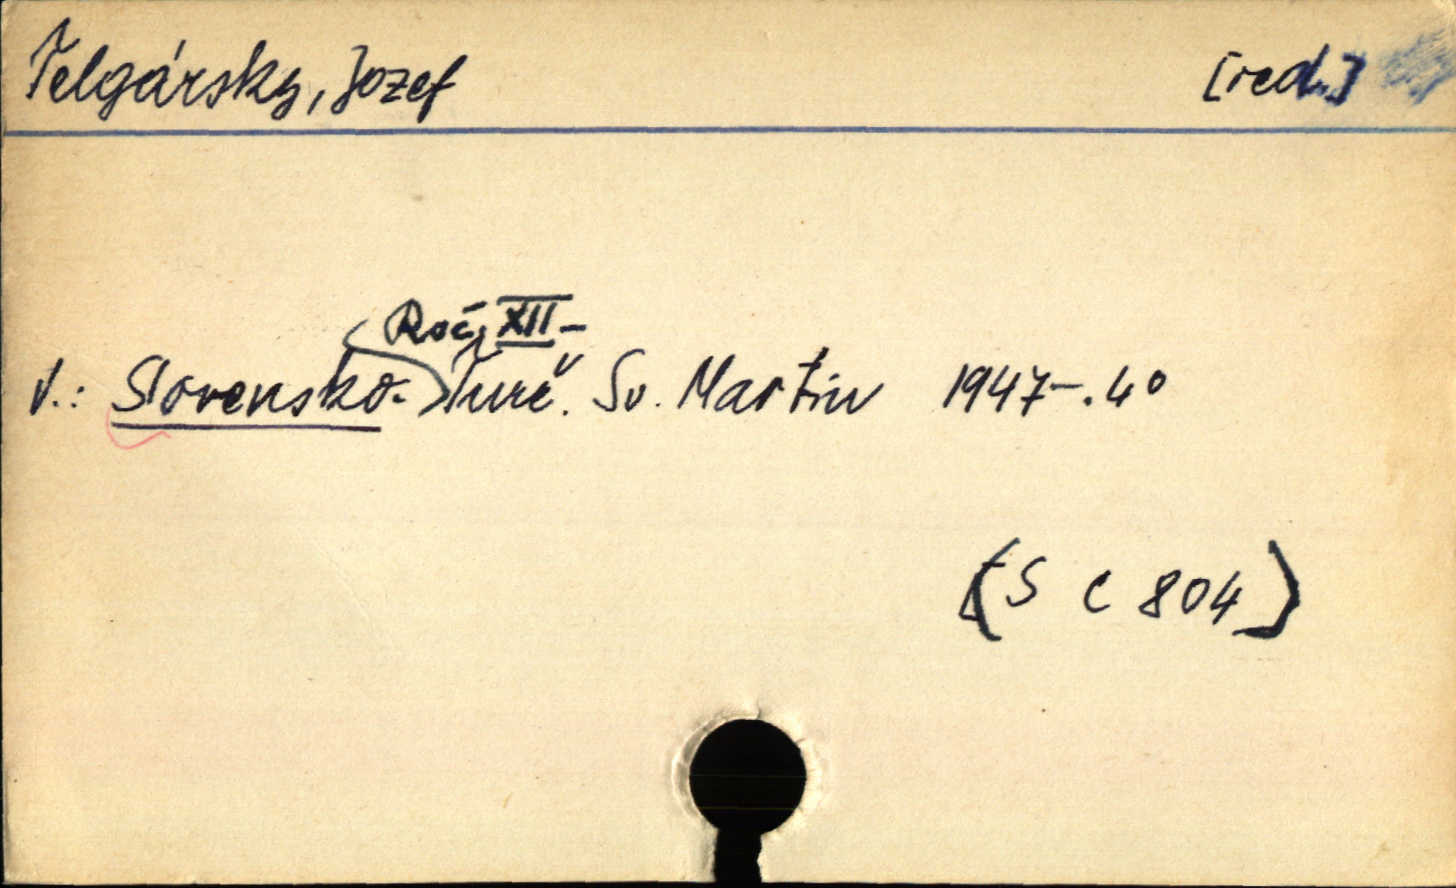 Telgársky, Jozef [red.]
Roč. XII-
v.: Slovensko. Turč. Sv. Martin 1947-. 4°
(S C 804)